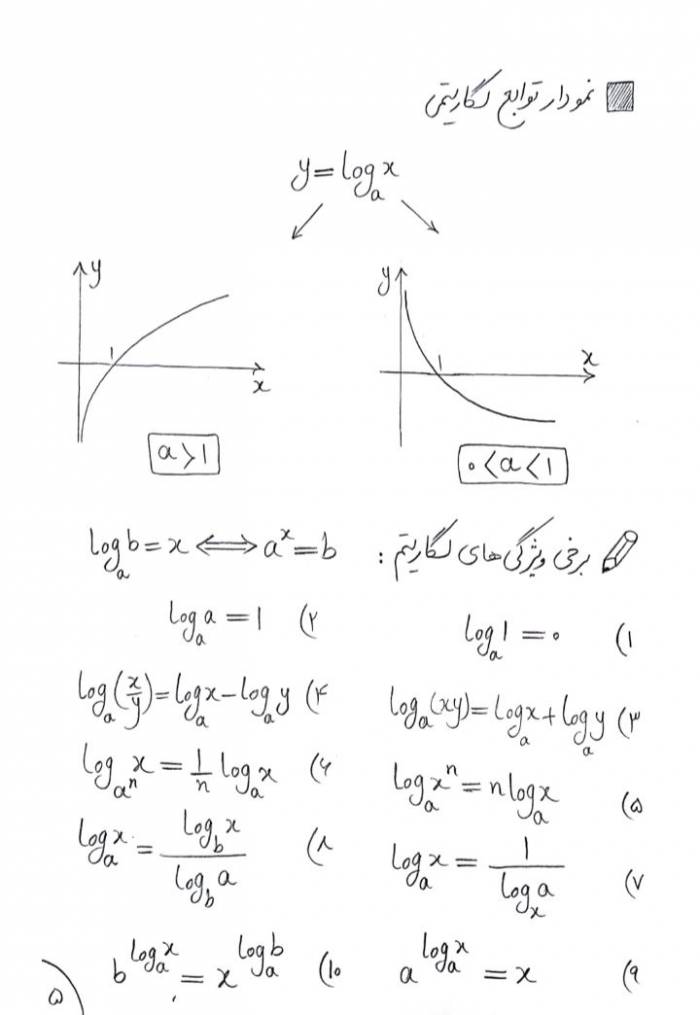 نمودار توابع لگاریتمی
y = log_a x
y
x
۱
a > 1
y
x
۱
۰ < a < 1
برخی ویژگی های لگاریتم : log_a b = x ⟺ a^x = b
۱) log_a 1 = ۰
۲) log_a a = 1
۳) log_a (xy) = log_a x + log_a y
۴) log_a (x/y) = log_a x − log_a y
۵) log_a x^n = n log_a x
۶) log_{a^n} x = 1/n log_a x
۷) log_a x = 1 / log_x a
۸) log_a x = log_b x / log_b a
۹) a^{log_a x} = x
۱۰) b^{log_a x} = x^{log_a b}
۵